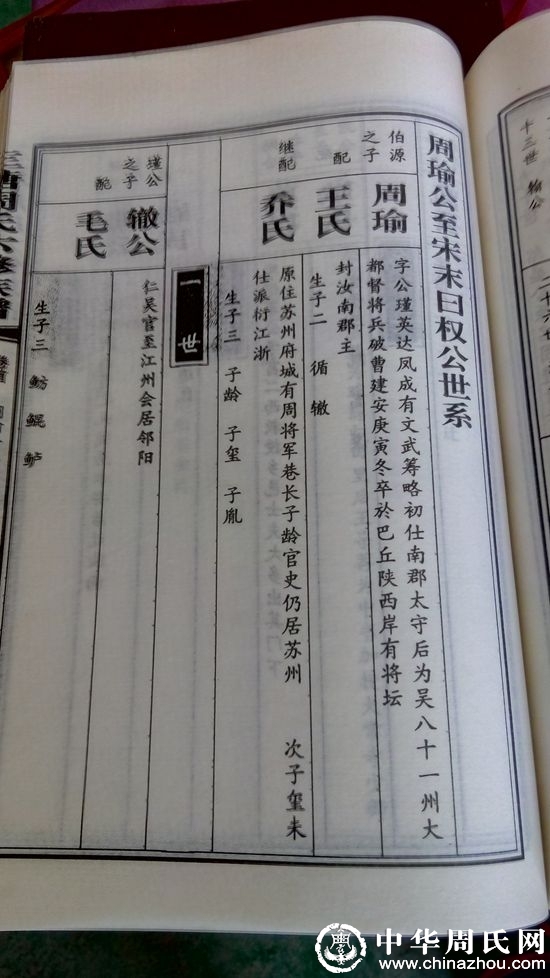 周瑜公至宋末曰权公世系
伯源之子
周瑜
字公瑾英达凤成有文武筹略初仕南郡太守后为吴八十一州大
都督将兵破曹建安庚寅冬卒於巴丘陕西岸有将坛
配
王氏
封汝南郡主
生子二 循 辙
继配
乔氏
原住苏州府城有周将军巷长子龄官史仍居苏州 次子玺未
仕派衍江浙
生子三 子龄 子玺 子胤
一世
瑾公之子
辙公
仁吴官至江州会居邻阳
配
毛氏
生子三 鲂 鲲 鲈
周氏六修族谱
卷首
十三世 翰公
二十六世
中华周氏网
www.chinazhou.com